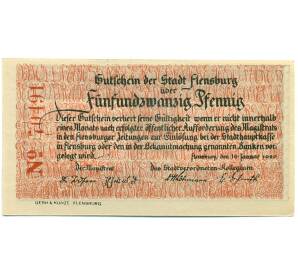 Gutschein der Stadt Flensburg
über
Fünfundzwanzig Pfennig
Dieser Gutschein verliert seine Gültigkeit wenn er nicht innerhalb
eines Monats nach erfolgter öffentlicher Aufforderung des Magistrats
in den Flensburger Zeitungen zur Einlösung bei der Stadthauptkasse
in Flensburg oder den in der Bekanntmachung genannten Banken vor-
gelegt wird.
Flensburg, den 10 Januar 1920
Der Magistrat
Das Stadtverordneten-Kollegium
No 70191
GEBR & KUNZE. FLENSBURG